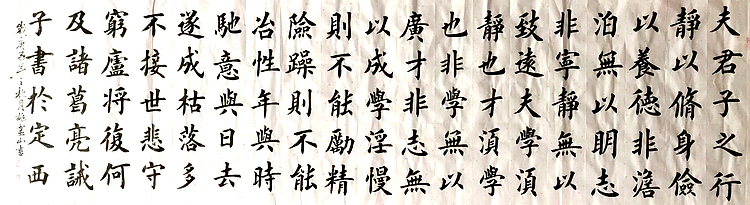 夫君子之行
靜以脩身儉
以養德非澹
泊無以明志
非寧靜無以
致遠夫學須
靜也才須學
也非學無以
廣才非志無
以成學淫慢
則不能勵精
險躁則不能
冶性年與時
馳意與日去
遂成枯落多
不接世悲守
窮廬將復何
及諸葛亮誡
子書於定西